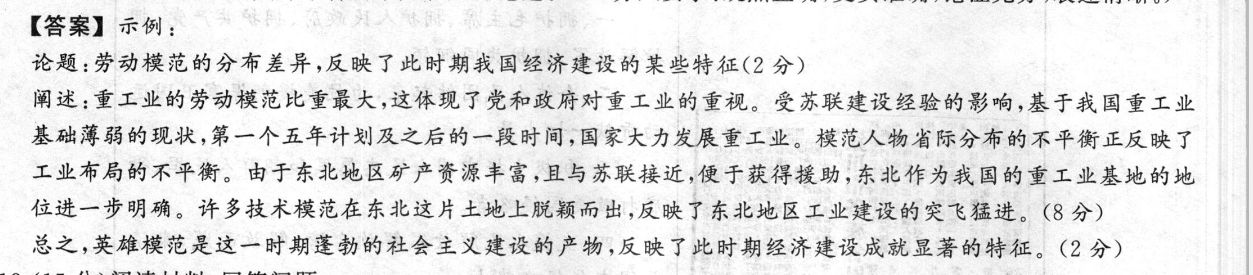 【答案】示例:
论题:劳动模范的分布差异,反映了此时期我国经济建设的某些特征(2分)
阐述:重工业的劳动模范比重最大,这体现了党和政府对重工业的重视。受苏联建设经验的影响,基于我国重工业
基础薄弱的现状,第一个五年计划及之后的一段时间,国家大力发展重工业。模范人物省际分布的不平衡正反映了
工业布局的不平衡。由于东北地区矿产资源丰富,且与苏联接近,便于获得援助,东北作为我国的重工业基地的地
位进一步明确。许多技术模范在东北这片土地上脱颖而出,反映了东北地区工业建设的突飞猛进。(8分)
总之,英雄模范是这一时期蓬勃的社会主义建设的产物,反映了此时期经济建设成就显著的特征。(2分)